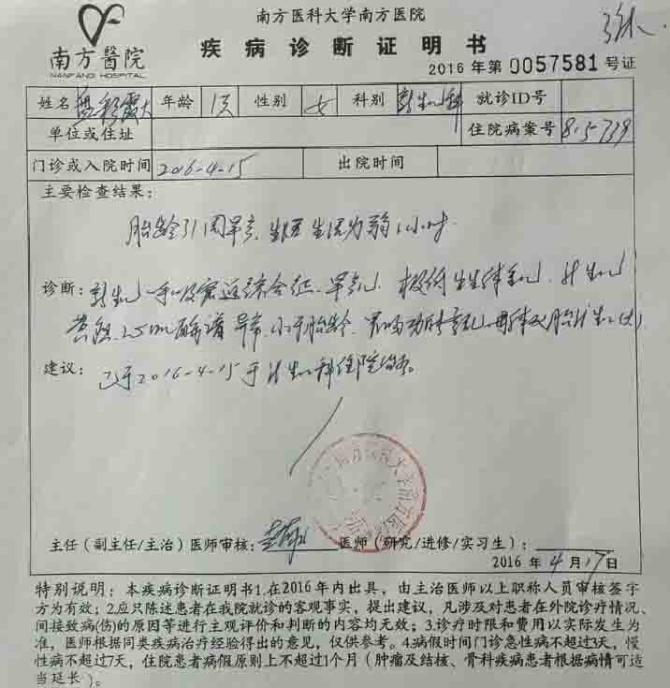 南方医科大学南方医院
南方醫院
NANFANG HOSPITAL
疾病诊断证明书
2016年第0057581号证
姓名 年龄 1天 性别 女 科别 新生儿科 就诊ID号
单位或住址 住院病案号
门诊或入院时间 2016-4-15 出院时间
主要检查结果：
胎龄31周早产，生后 1小时
诊断：新生儿呼吸窘迫综合征、早产儿、极低出生体重儿、
黄疸、 小于胎龄、
建议：已于2016-4-15于 科住院治疗。
主任（副主任/主治）医师审核： 医师（研究/进修/实习生）：
2016年4月17日
特别说明：本疾病诊断证明书1.在2016年内出具，由主治医师以上职称人员审核签字
方为有效；2.应只陈述患者在我院就诊的客观事实，提出建议，凡涉及对患者在外院诊疗情况、
间接致病(伤)的原因等进行主观评价和判断的内容均无效；3.诊疗时限和费用以实际发生为
准，医师根据同类疾病治疗经验得出的意见，仅供参考。4.病假时间门诊急性病不超过3天，慢
性病不超过7天，住院患者病假原则上不超过1个月（肿瘤及结核、骨科疾病患者根据病情可适
当延长）。